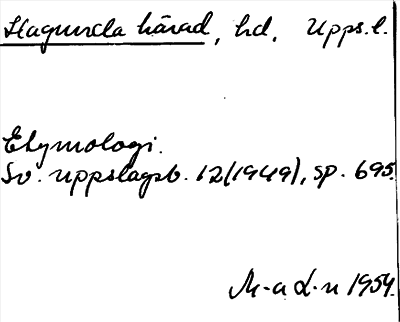 Hagunda härad, hd, Upps.l.
Etymologi.
Sv. uppslagsb. 12(1949), sp. 695.
M-a L-n 1954.